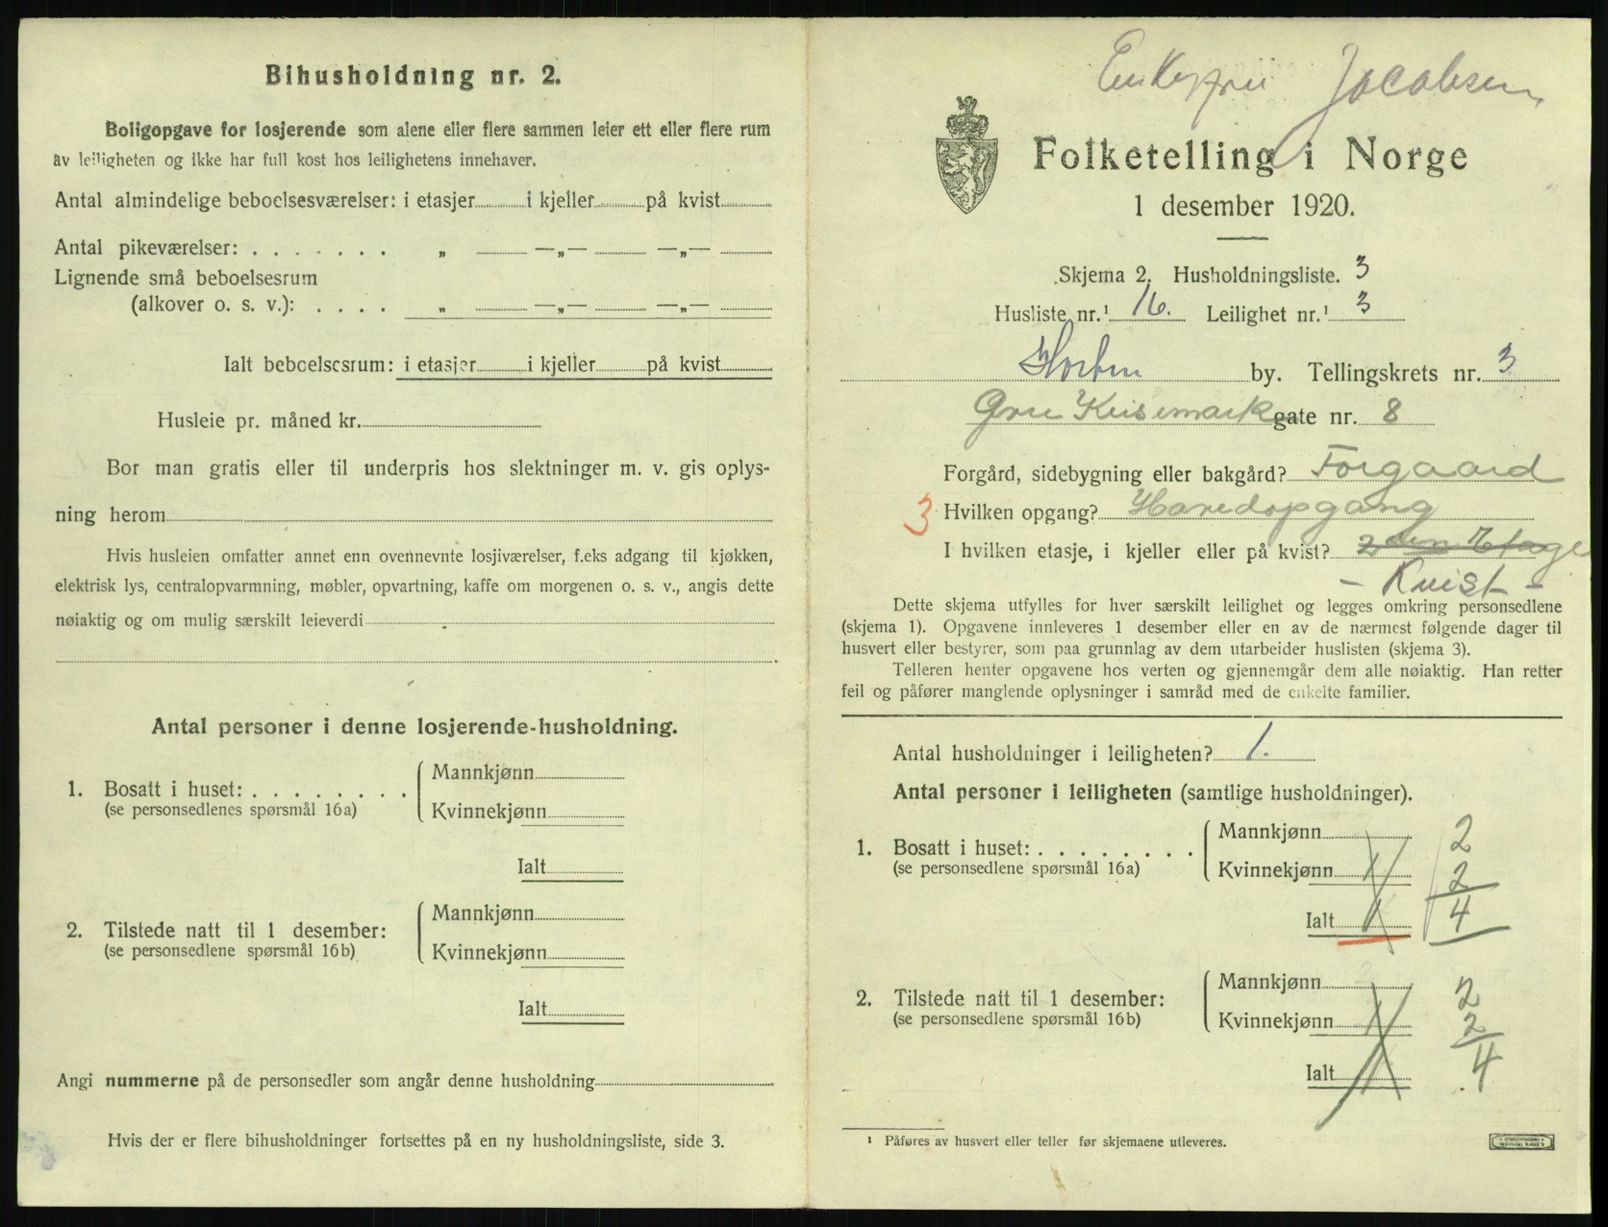 Bihusholdning nr. 2.
Boligopgave for losjerende som alene eller flere sammen leier ett eller flere rum
av leiligheten og ikke har full kost hos leilighetens innehaver.
Antal almindelige beboelsesværelser: i etasjer i kjeller på kvist
Antal pikeværelser: . . . . . . . „ —„— —„—
Lignende små beboelsesrum
(alkover o. s. v.): . . . . „ —„— —„—
Ialt beboelsesrum: i etasjer i kjeller på kvist
Husleie pr. måned kr.
Bor man gratis eller til underpris hos slektninger m. v. gis oplys-
ning herom
Hvis husleien omfatter annet enn ovennevnte losjiværelser, f.eks adgang til kjøkken,
elektrisk lys, centralopvarmning, møbler, opvartning, kaffe om morgenen o. s. v., angis dette
nøiaktig og om mulig særskilt leieverdi
Antal personer i denne losjerende-husholdning.
1. Bosatt i huset: . . . . . . . .
(se personsedlenes spørsmål 16a)
Mannkjønn
Kvinnekjønn
Ialt
2. Tilstede natt til 1 desember:
(se personsedlenes spørsmål 16b)
Mannkjønn
Kvinnekjønn
Ialt
Angi nummerne på de personsedler som angår denne husholdning
Hvis der er flere bihusholdninger fortsettes på en ny husholdningsliste, side 3.
Jacobsen
Folketelling i Norge
1 desember 1920.
Skjema 2. Husholdningsliste. 3
Husliste nr.¹ 16. Leilighet nr.¹ 3
Horten by. Tellingskrets nr. 3
gate nr. 8
Forgård, sidebygning eller bakgård? Forgaard
3 Hvilken opgang? Hovedopgang
I hvilken etasje, i kjeller eller på kvist? 2den Etage
- Kvist -
Dette skjema utfylles for hver særskilt leilighet og legges omkring personsedlene
(skjema 1). Opgavene innleveres 1 desember eller en av de nærmest følgende dager til
husvert eller bestyrer, som paa grunnlag av dem utarbeider huslisten (skjema 3).
Telleren henter opgavene hos verten og gjennemgår dem alle nøiaktig. Han retter
feil og påfører manglende oplysninger i samråd med de enkelte familier.
Antal husholdninger i leiligheten? 1.
Antal personer i leiligheten (samtlige husholdninger).
1. Bosatt i huset: . . . . . . . .
(se personsedlene spørsmål 16a)
Mannkjønn 2
Kvinnekjønn 1 2
Ialt 1 4
2. Tilstede natt til 1 desember:
(se personsedlene spørsmål 16b)
Mannkjønn 2
Kvinnekjønn 1 2
Ialt 1 4
¹ Påføres av husvert eller teller før skjemaene utleveres.